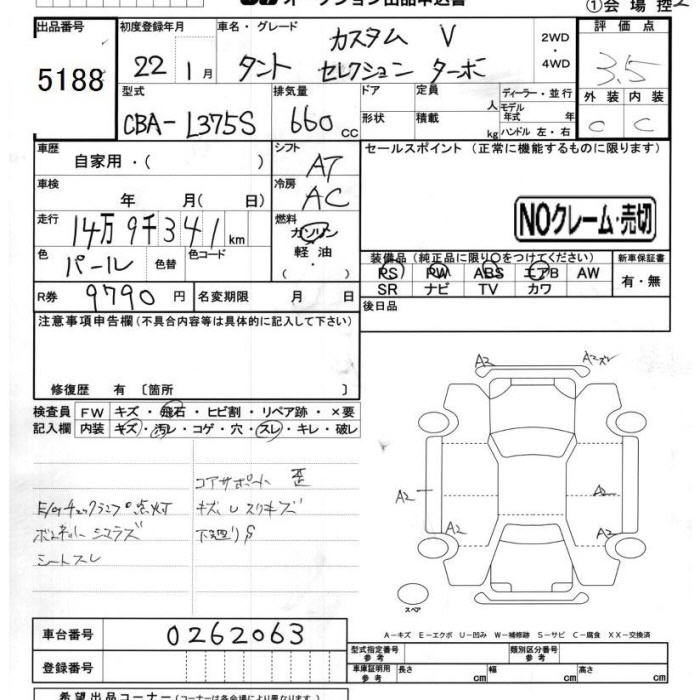 オークション出品申込書
①会場控
出品番号
5188
初度登録年月
22 1月
車名・グレード
カスタム V
タント セレクション ターボ
2WD
・
4WD
評価点
3.5
外装 内装
C C
型式
CBA-L375S
排気量
660 cc
ドア
形状
定員
人
積載
kg
ディーラー・並行
モデル年式 年式
ハンドル 左・右
車歴
自家用・( )
シフト
AT
セールスポイント (正常に機能するものに限ります)
車検
年 月( 日)
冷房
AC
NOクレーム・売切
走行
14万9千341 km
燃料
ガソリン
軽油
( ・ )
色
パール
色替
色コード
装備品(純正品に限り〇をつけてください)
PS PW ABS エアB AW
SR ナビ TV カワ
新車保証書
有・無
R券
9790円
名変期限 月 日
後日品
注意事項申告欄(不具合内容等は具体的に記入して下さい)
修復歴 有〔箇所 〕
検査員 FW キズ・飛石・ヒビ割・リペア跡・×要
記入欄 内装 キズ・汚レ・コゲ・穴・スレ・キレ・破レ
コアサポート 歪
E/gチェックランプ点灯
キズ スリキズ
ボンネット
下廻りS
シートスレ
A2
A2
A2
A2
A2
A2
スペア
A-キズ E-エクボ U-凹み W-補修跡 S-サビ C-腐食 XX-交換済
車台番号
0262063
登録番号
型式指定番号
参考
類別区分番号
参考
車庫証明用
参考
長さ cm
幅 cm
高さ cm
希望出品コーナー(コーナーは各会場により異なります)